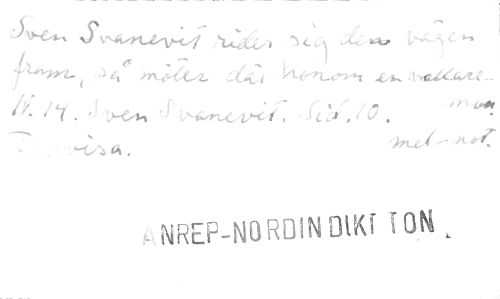 Sven Svanevit rider sig den vägen
fram, så möter där honom en vallare-
IV. 14. Sven Svanevit. Sid. 10. man.
visa. mel-not.
ANREP-NORDIN DIKT TON.